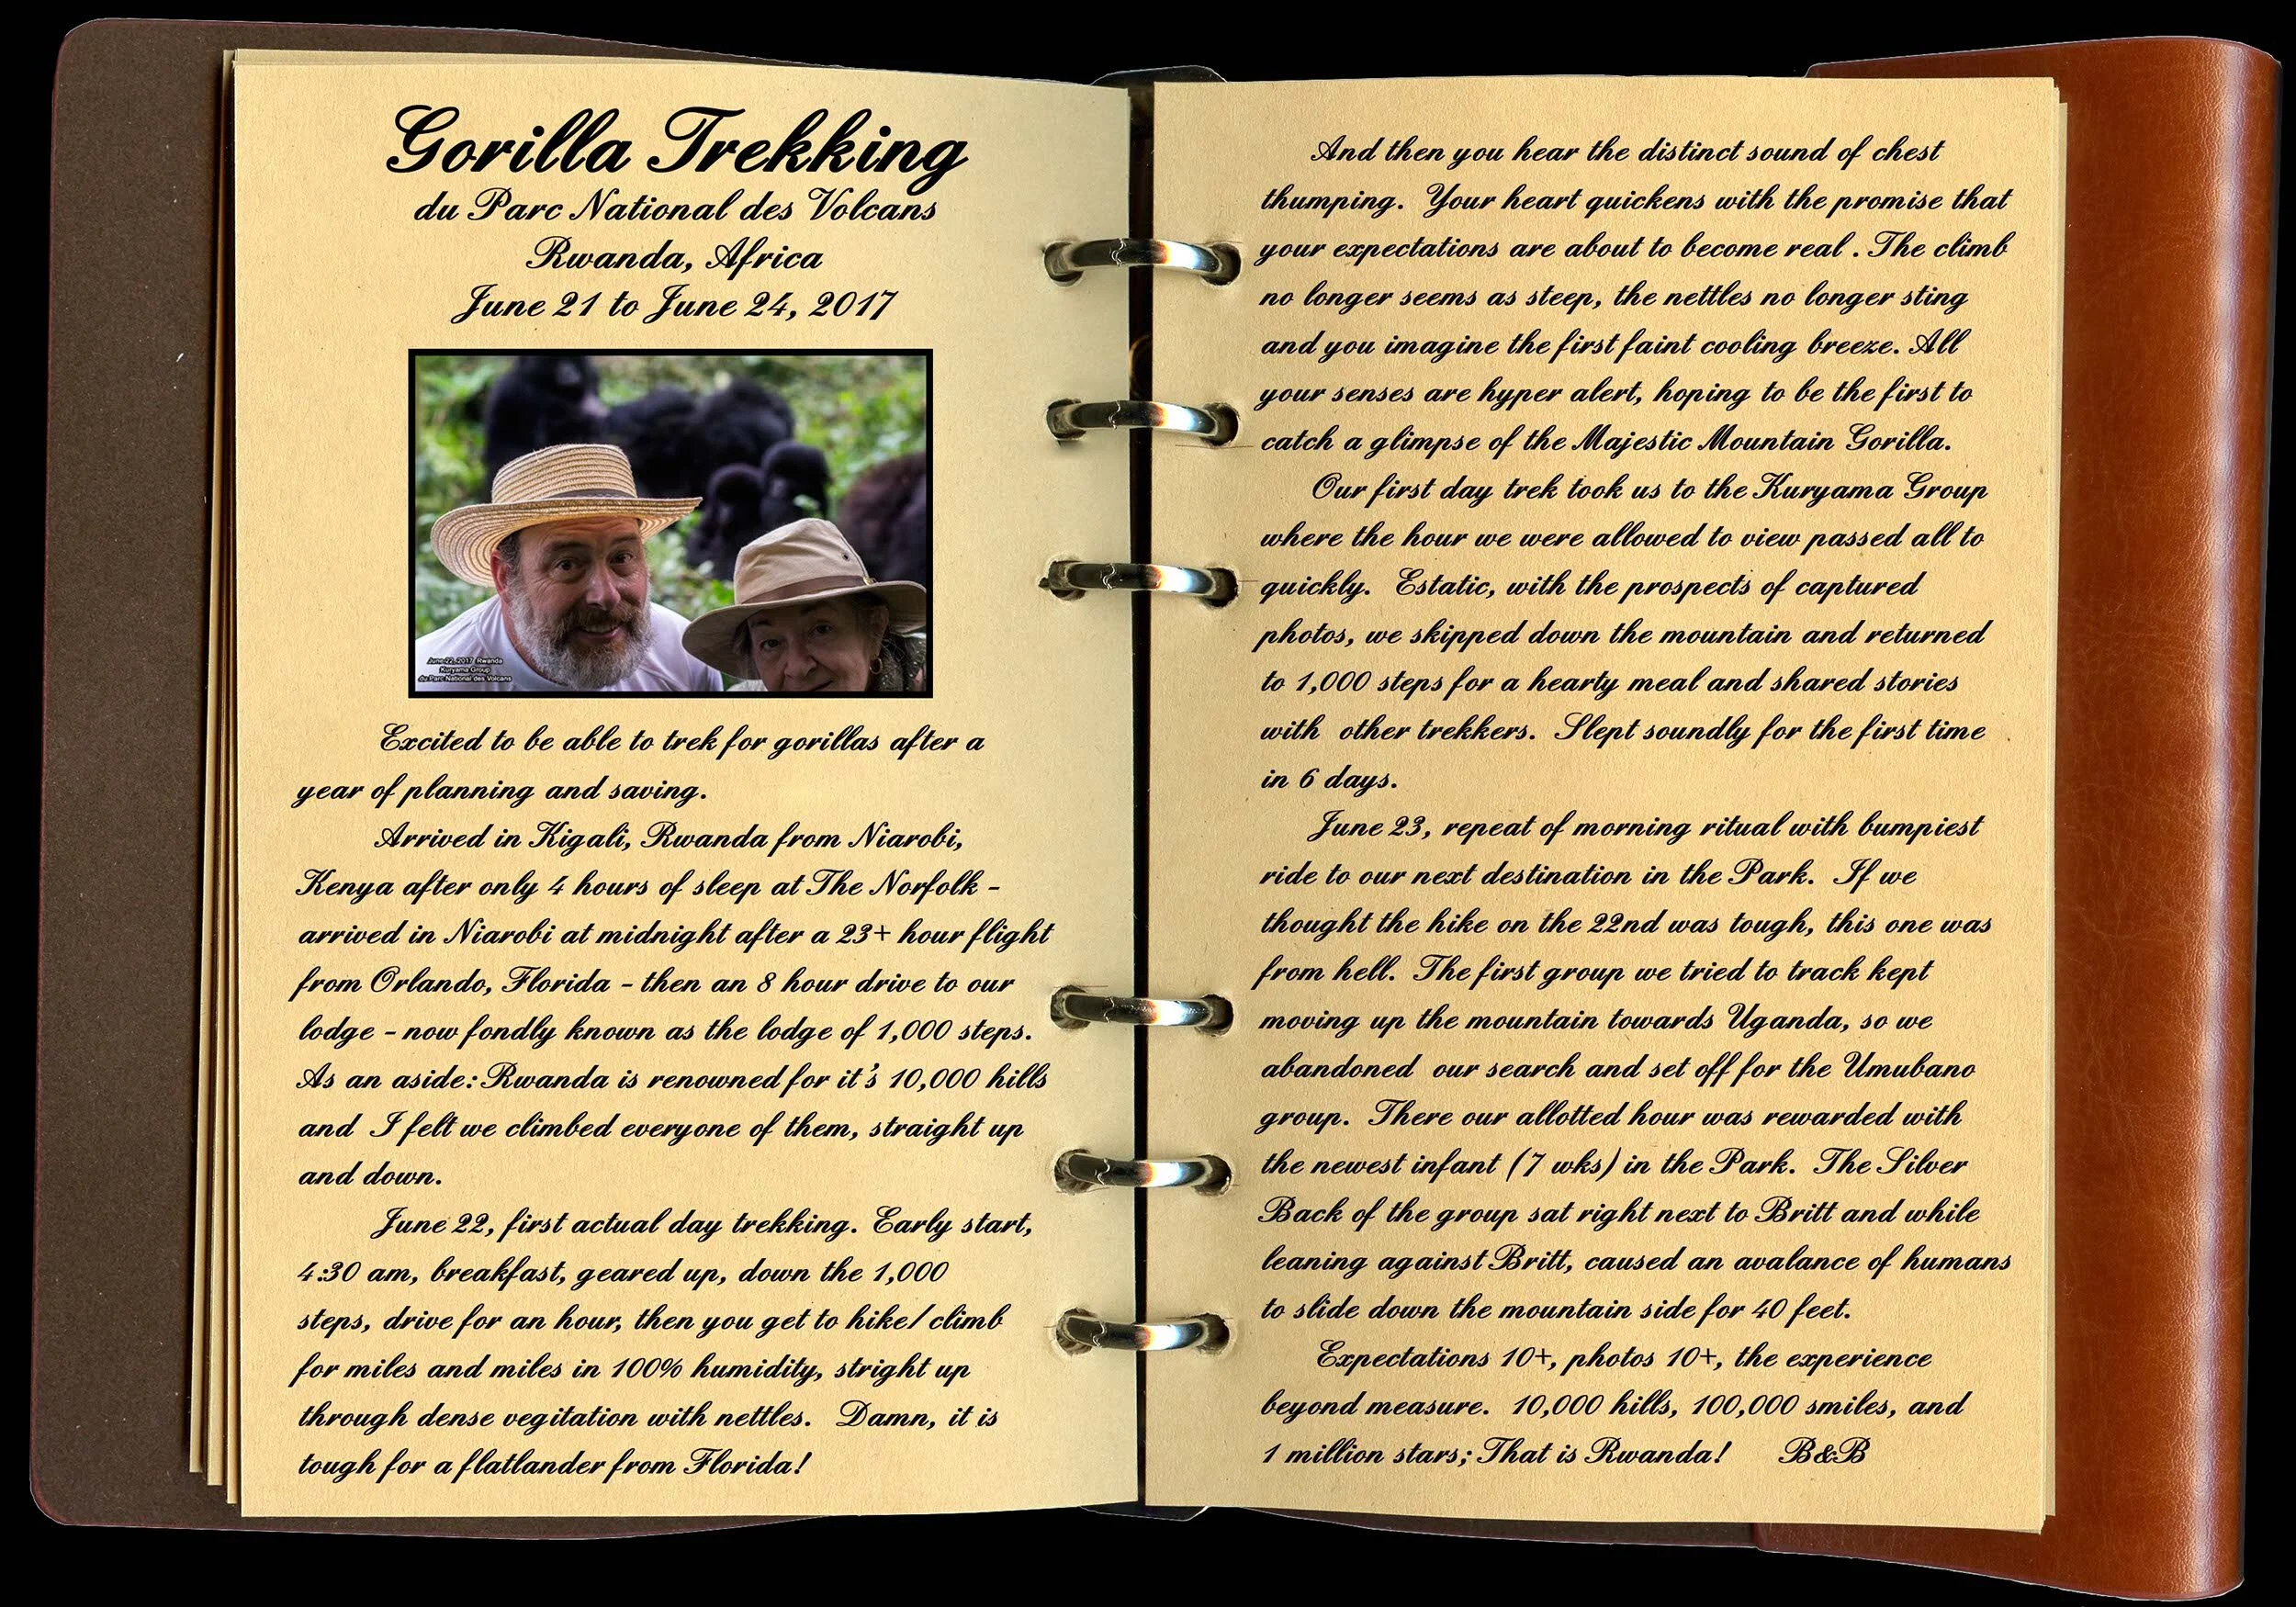 Gorilla Trekking
du Parc National des Volcans
Rwanda, Africa
June 21 to June 24, 2017
June 22, 2017 Rwanda
Kuryama Group
du Parc National des Volcans
Excited to be able to trek for gorillas after a
year of planning and saving.
Arrived in Kigali, Rwanda from Niarobi,
Kenya after only 4 hours of sleep at The Norfolk -
arrived in Niarobi at midnight after a 23+ hour flight
from Orlando, Florida - then an 8 hour drive to our
lodge - now fondly known as the lodge of 1,000 steps.
As an aside: Rwanda is renowned for it's 10,000 hills
and I felt we climbed everyone of them, straight up
and down.
June 22, first actual day trekking. Early start,
4:30 am, breakfast, geared up, down the 1,000
steps, drive for an hour, then you get to hike/climb
for miles and miles in 100% humidity, stright up
through dense vegitation with nettles. Damn, it is
tough for a flatlander from Florida!
And then you hear the distinct sound of chest
thumping. Your heart quickens with the promise that
your expectations are about to become real . The climb
no longer seems as steep, the nettles no longer sting
and you imagine the first faint cooling breeze. All
your senses are hyper alert, hoping to be the first to
catch a glimpse of the Majestic Mountain Gorilla.
Our first day trek took us to the Kuryama Group
where the hour we were allowed to view passed all to
quickly. Estatic, with the prospects of captured
photos, we skipped down the mountain and returned
to 1,000 steps for a hearty meal and shared stories
with other trekkers. Slept soundly for the first time
in 6 days.
June 23, repeat of morning ritual with bumpiest
ride to our next destination in the Park. If we
thought the hike on the 22nd was tough, this one was
from hell. The first group we tried to track kept
moving up the mountain towards Uganda, so we
abandoned our search and set off for the Umubano
group. There our allotted hour was rewarded with
the newest infant (7 wks) in the Park. The Silver
Back of the group sat right next to Britt and while
leaning against Britt, caused an avalance of humans
to slide down the mountain side for 40 feet.
Expectations 10+, photos 10+, the experience
beyond measure. 10,000 hills, 100,000 smiles, and
1 million stars; That is Rwanda! B&B